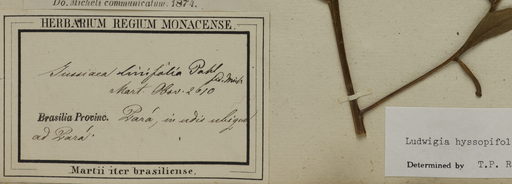 Do. Micheli communicatum. 1874.
HERBARIUM REGIUM MONACENSE.
Jussiaea linifolia Vahl
Mart. Obs. 2610
Brasilia Provinc. Pará, in udis ubique
ad Pará.
Martii iter brasiliense.
Ludwigia hyssopifol
Determined by T.P. R